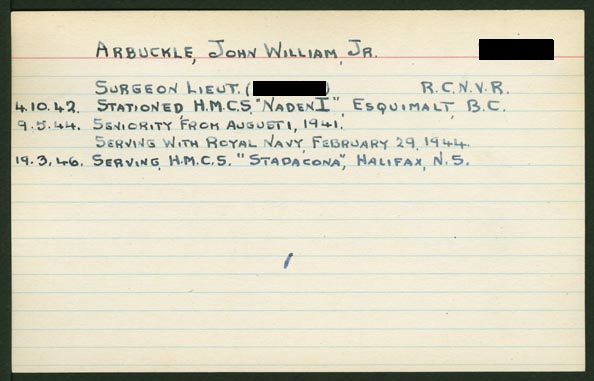 ARBUCKLE, JOHN WILLIAM, JR.
SURGEON LIEUT. ( ) R.C.N.V.R.
4.10.42. STATIONED, H.M.C.S. "NADEN I", ESQUIMALT, B.C.
9.5.44. SENIORITY FROM AUGUST 1, 1941.
SERVING WITH ROYAL NAVY, FEBRUARY 29, 1944.
19.3.46. SERVING, H.M.C.S. "STADACONA", HALIFAX, N.S.